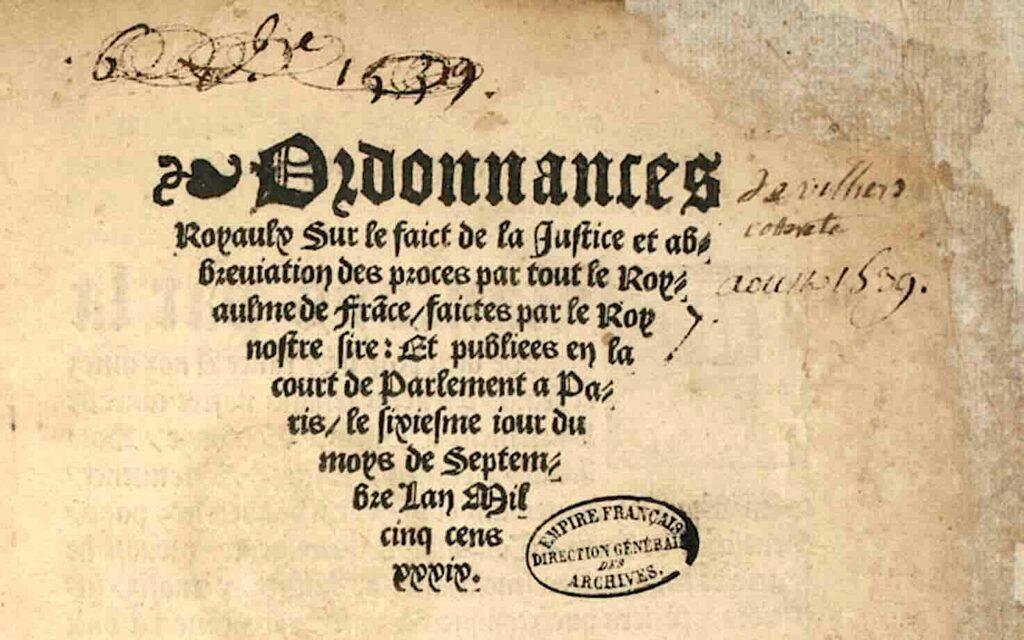 6 7bre 1539.
Ordonnances
Royaulx Sur le faict de la Justice et ab⸗
breviation des proces par tout le Roy⸗
aulme de Frãce/faictes par le Roy
nostre sire: Et publiees en la
court de Parlement a Pa⸗
ris/ le sixiesme iour du
moys de Septem⸗
bre Lan Mil
cinq cens
xxxix.
de villiers
cotterets
aoust 1539.
EMPIRE FRANÇAIS
DIRECTION GÉNÉRALE
DES
ARCHIVES.